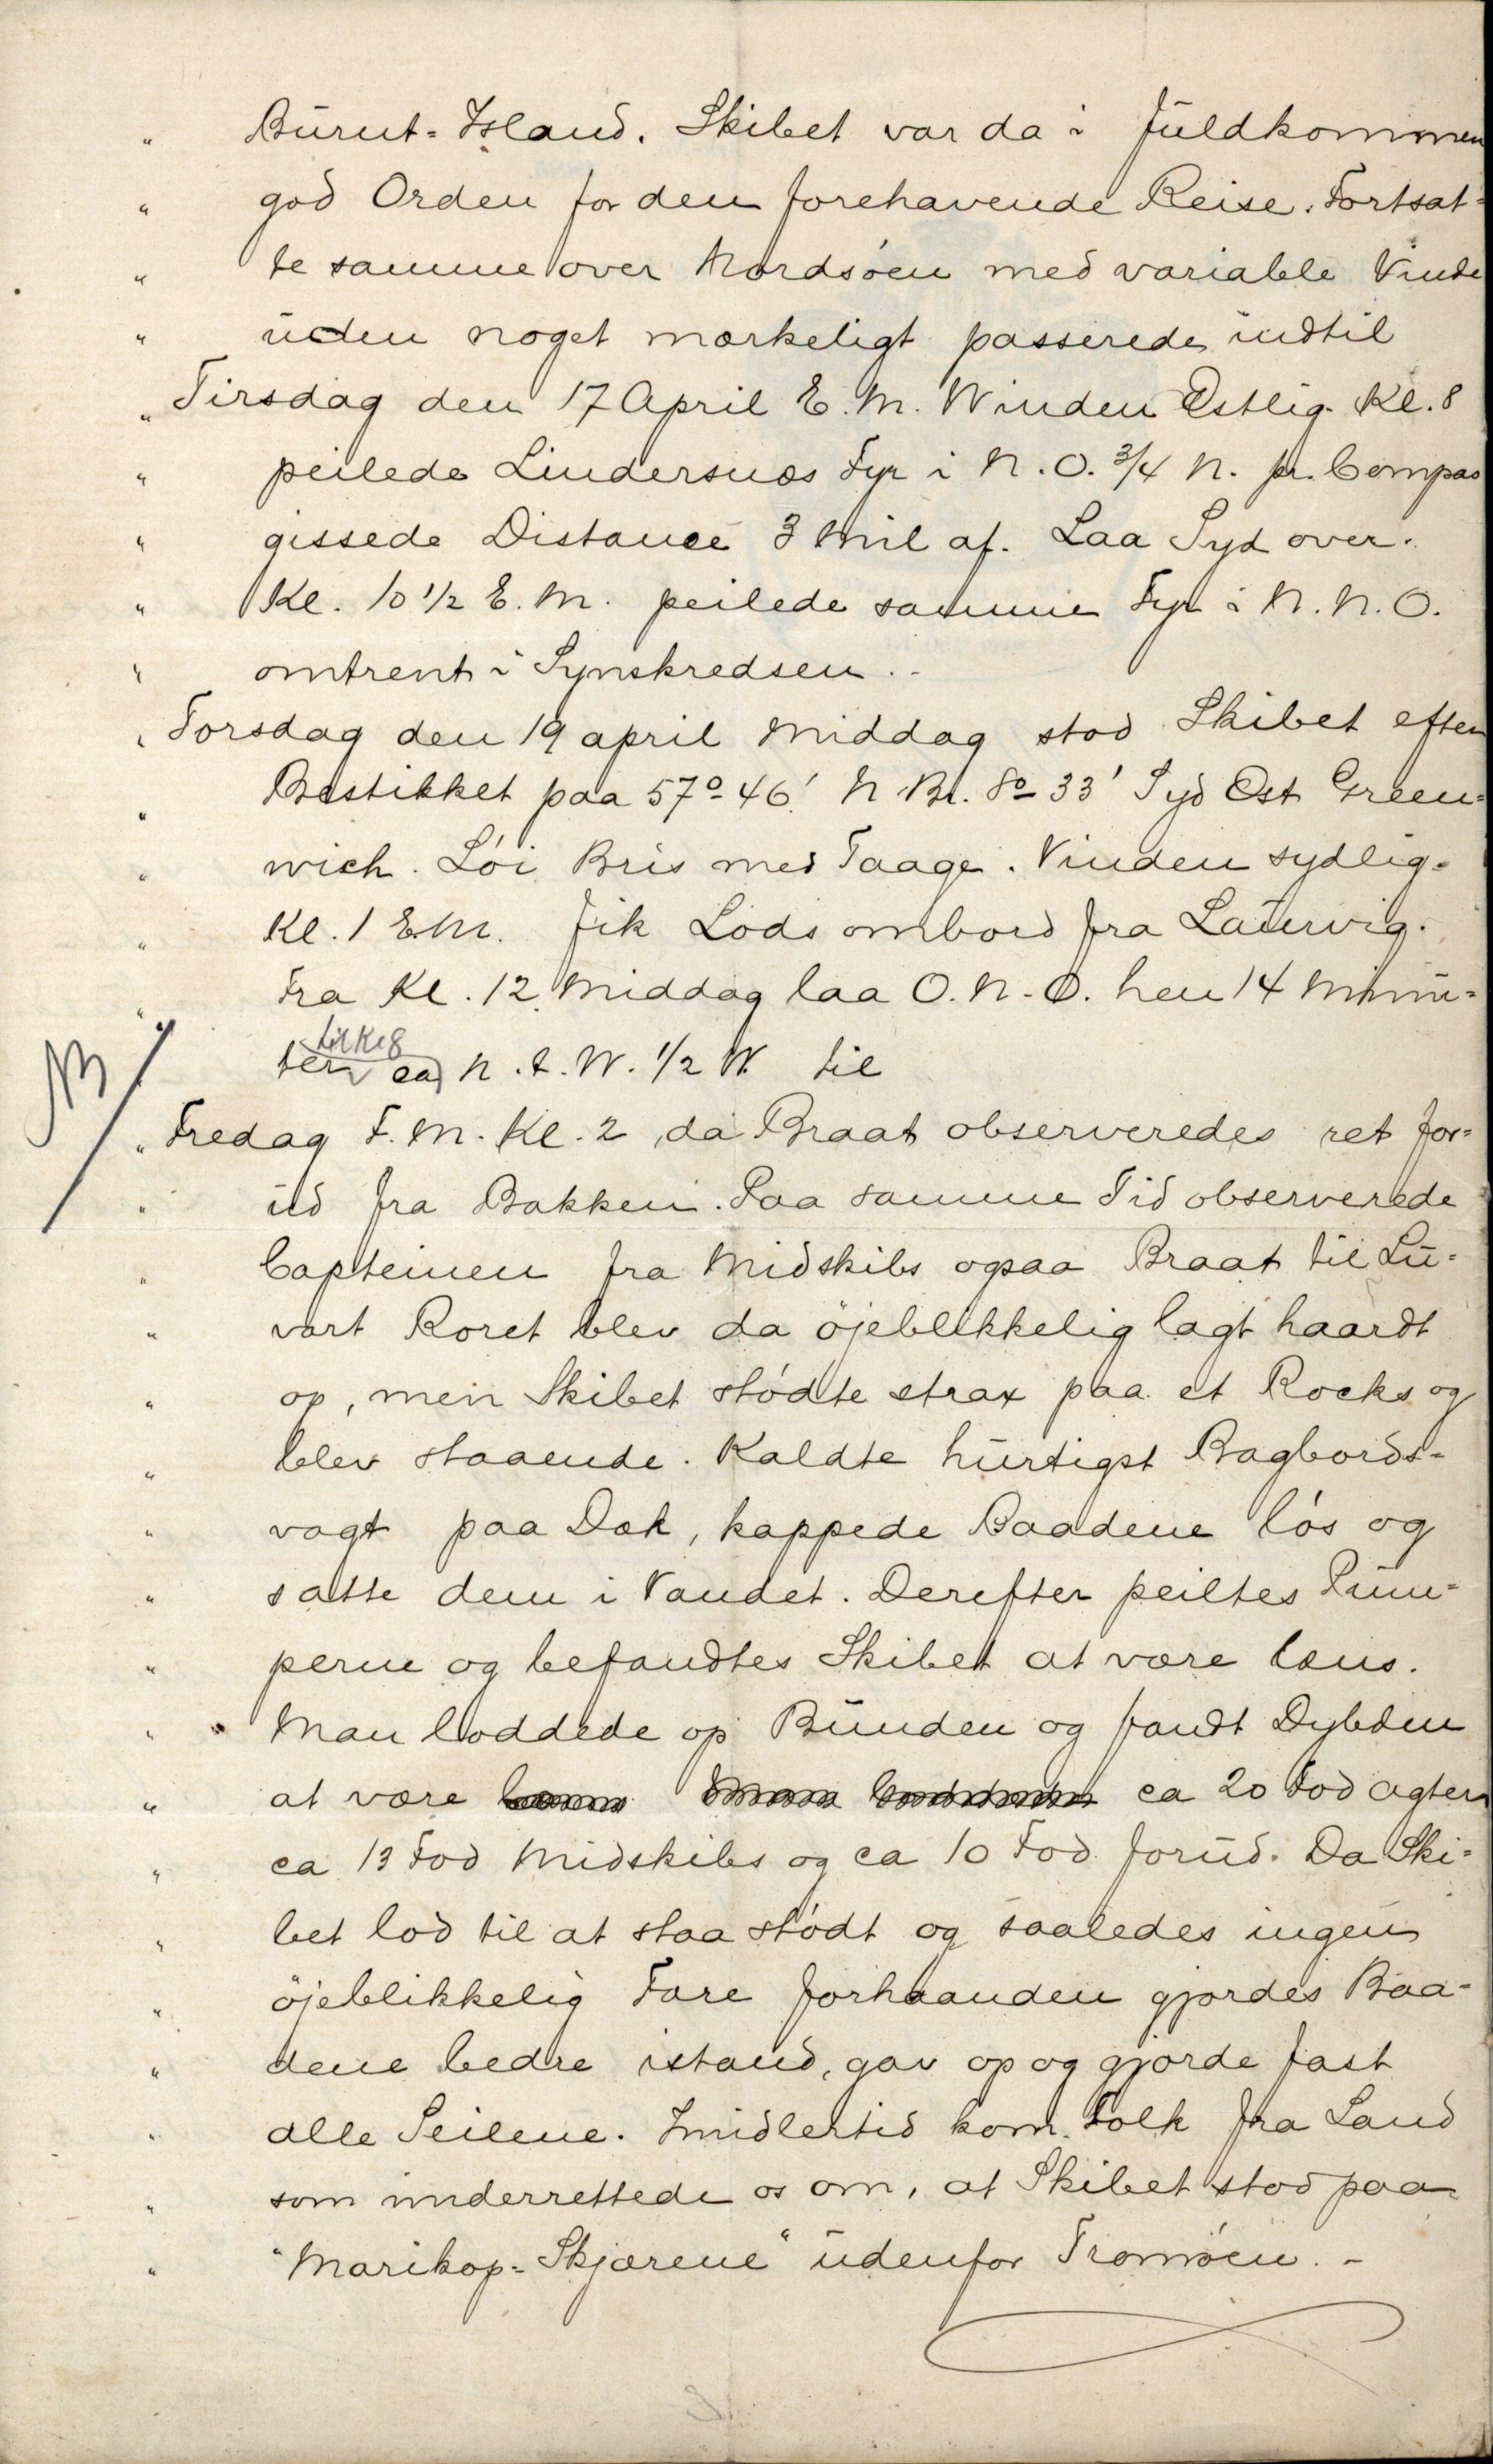 " Burnt=Island. Skibet var da i fuldkommen
" god Orden for den forehavende Reise. Fortsat=
" te samme over Nordsöen med variable Vinde
" uden noget mærkeligt passerede indtil
" Tirsdag den 17 April E.M. Winden Östlig. Kl. 8
" peilede Lindersnæs Fyr i N.O. 3/4 N. pr. Compas
" gissede Distance 3 Mil af. Laa Syd over.
" Kl. 10 1/2 E.M. peilede samme Fyr i N.N.O.
" omtrent i Synskredsen.-
" Torsdag den 19 april Middag stod Skibet efter
" Bestikket paa 57°-46' N.Br. 8°-33' Syd Ost Green=
" wich. Löi Bris med Taage. Vinden sydlig.
" Kl. 1 E.M. fik Lods ombord fra Laurvig.
" Fra Kl. 12 Middag laa O.N.O. hen 14 Minu=
til Kl 8
NB/ " ter ca N.t.W. 1/2 W. til
" Fredag F.M. Kl. 2, da Braat observeredes ret for=
" ud fra Bakken. Paa samme Tid observerede
" Capteinen fra Midskibs ogsaa Braat til Lu=
" vart Roret blev da öjeblikkelig lagt haardt
" op, men Skibet stödte strax paa et Rocks og
" blev staaende. Kaldte hurtigst Bagbords=
" vagt paa Dæk, kappede Baadene lös og
" satte dem i Vandet. Derefter peiltes Pum=
" perne og befandtes Skibet at være læns.
" " Man loddede op Bunden og fandt Dybden
" at være ca 20 Fod agter
" ca 13 Fod Midskibs og ca 10 Fod forud. Da Ski=
" bet lod til at staa stödt og saaledes ingen
" öjeblikkelig Fare forhaanden gjordes Baa=
" dene bedre istand, gav op og gjorde fast
" alle Seilene. Imidlertid kom Folk fra Land
" som underrettede os om, at Skibet stod paa
" "Marikop=Skjærene" udenfor Tromöen.-